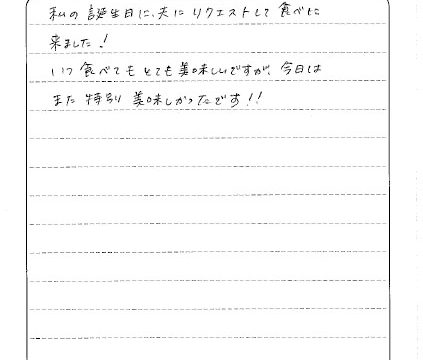 私の誕生日に、夫にリクエストして食べに
来ました!
いつ食べてもとても美味しいですが、今日は
また特別美味しかったです!!